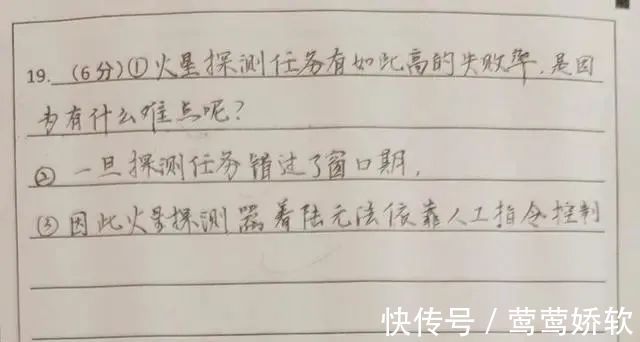 19. (6分)①火星探测任务有如此高的失败率,是因
为有什么难点呢?
② 一旦探测任务错过了窗口期,
③因此火星探测器着陆无法依靠人工指令控制
快传号 / 莺莺娇软